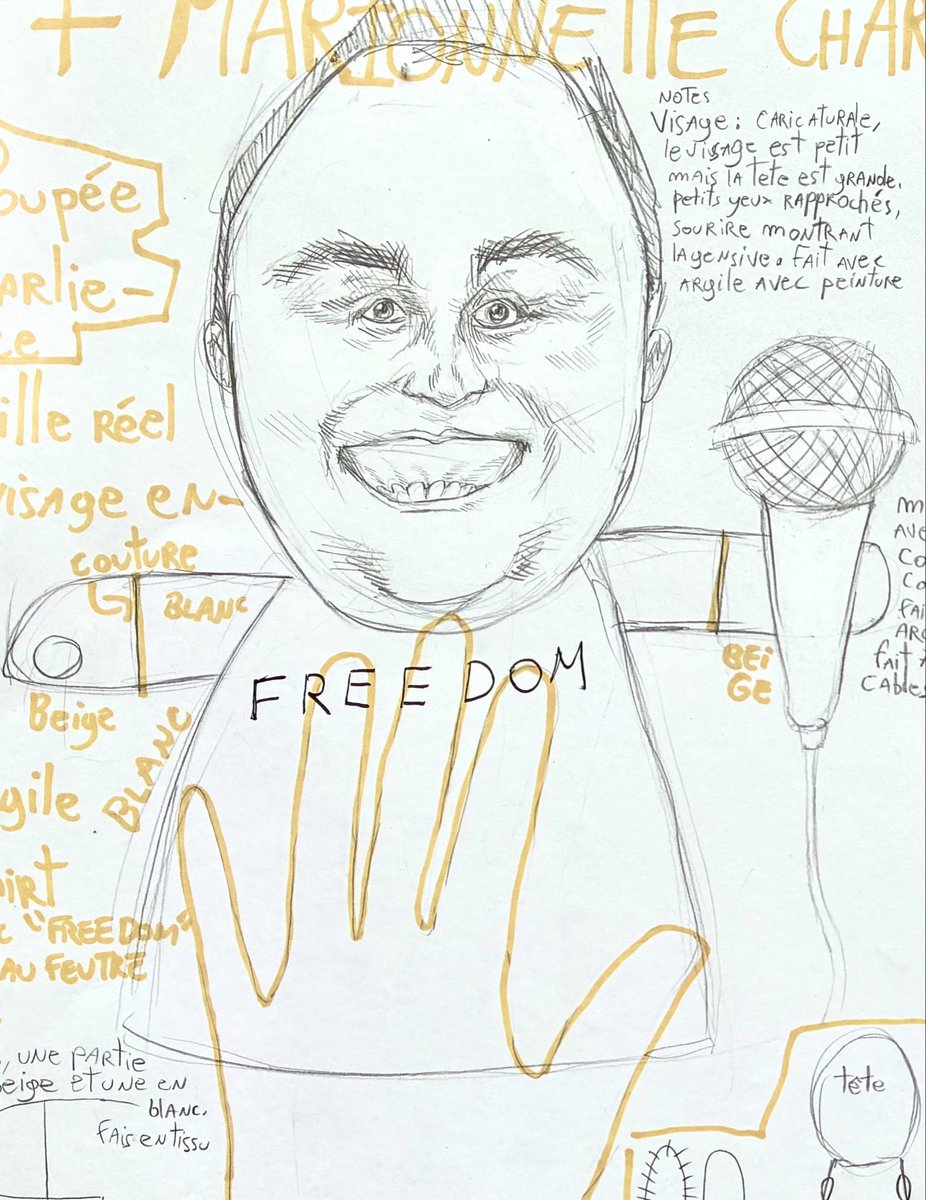 + MARIONNETTE CHAR
NOTES
VISAGE : CARICATURALE,
le visage est petit
mais la tete est grande.
petits yeux rapprochés,
sourire montrant
la gensive. Fait avec
argile avec peinture
oupée
arlie-
ce
ille réel
visage en-
couture
BLANC
Beige
BLANC
gile
FREEDOM
BEI
GE
M
AVE
CO
CO
FAI
ARG
FAIT A
CABLES
"FREEDOM"
AU FEUTRE
, UNE PARTIE
Beige et une en
blanc.
fais en tissu
tête